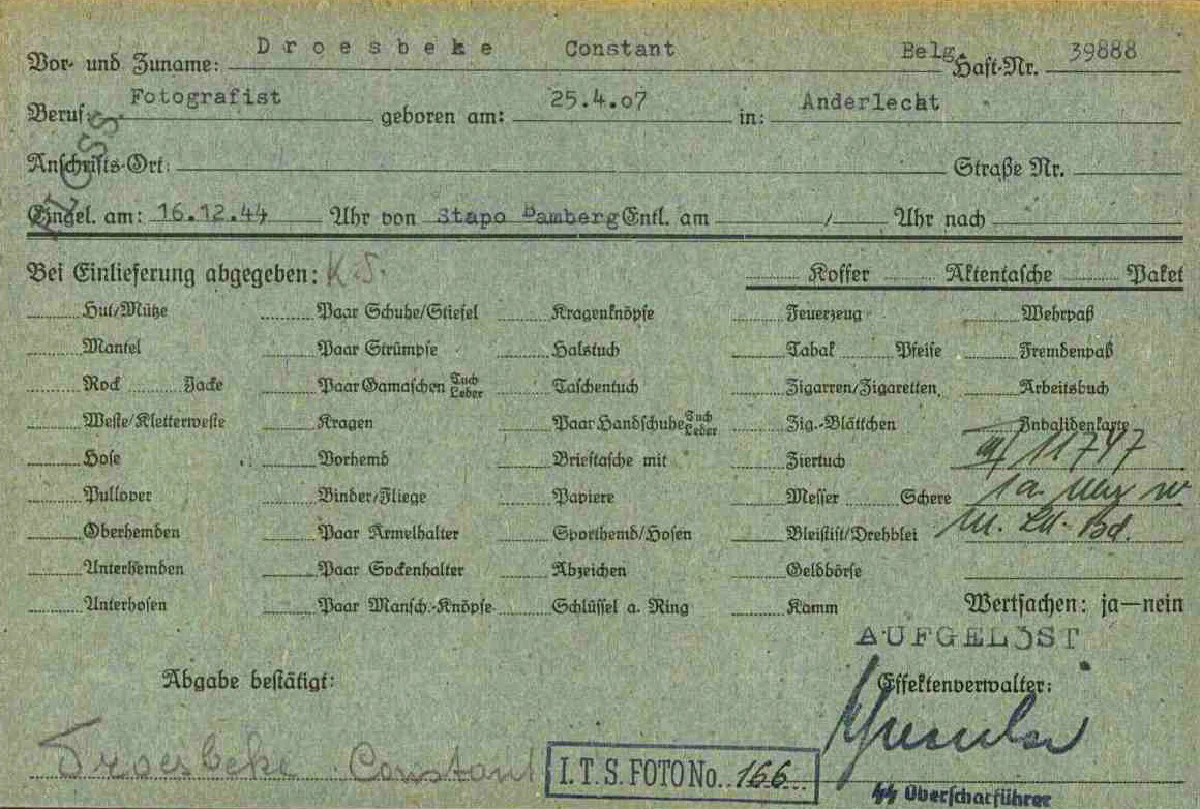 Vor- und Zuname: Droesbeke Constant Belg. Haft-Nr. 39888
Beruf: Fotografist geboren am: 25.4.07 in: Anderlecht
FLOSS
Anschrifts-Ort: Straße Nr.
Eingel. am: 16.12.44 Uhr von Stapo Bamberg Entl. am / Uhr nach
Bei Einlieferung abgegeben: K.S. Koffer Aktentasche Paket
Hut/Mütze Paar Schuhe/Stiefel Kragenknöpfe Feuerzeug Wehrpaß
Mantel Paar Strümpfe Halstuch Tabak Pfeife Fremdenpaß
Rock Jacke Paar Gamaschen Tuch Leder Taschentuch Zigarren/Zigaretten Arbeitsbuch
Weste/Kletterweste Kragen Paar Handschuhe Tuch Leder Zig.-Blättchen Invalidenkarte
Hose Vorhemd Brieftasche mit Ziertuch 11747
Pullover Binder/Fliege Papiere Messer Schere
Oberhemden Paar Ärmelhalter Sporthemd/Hosen Bleistift/Drehblei
Unterhemden Paar Sockenhalter Abzeichen Geldbörse
Unterhosen Paar Mansch.-Knöpfe Schlüssel a. Ring Kamm Wertsachen: ja—nein
AUFGELÖST
Abgabe bestätigt: Effektenverwalter:
Droesbeke Constant
I.T.S. FOTO No. 166
SS Oberscharführer